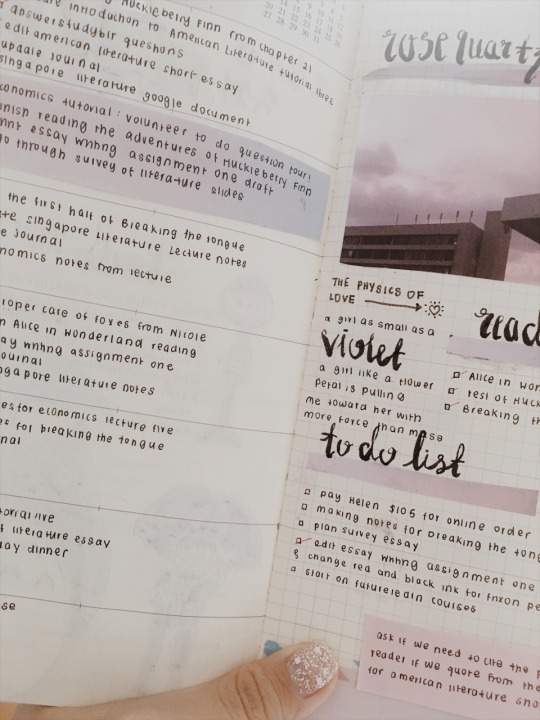 Huckleberry Finn from chapter 21
introduction to American literature tutorial three
answer studybir questions
edit american literature short essay
update journal
singapore literature google document
economics tutorial: volunteer to do question four!
finish reading the adventures of Huckleberry Finn
essay writing assignment one draft
go through survey of literature slides
the first half of Breaking the tongue
singapore literature lecture notes
journal
notes from lecture
proper care of foxes from Nicole
Alice in wonderland reading
writing assignment one
journal
singapore literature notes
for economics lecture five
for breaking the tongue
five
literature essay
dinner
rose quartz
THE PHYSICS OF
LOVE
a girl as small as a
violet
a girl like a flower
petal is pulling
me toward her with
more force than mass
read
Alice in
rest of
Breaking
to do list
pay Helen $105 for online order
making notes for breaking the
plan survey essay
edit essay writing assignment one
change red and black ink for
start on futurelearn courses
ask if we need to cite the
reader if we quote from the
for american literature